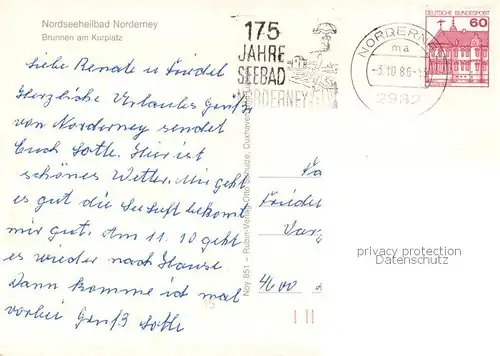 Nordseeheilbad Norderney
Brunnen am Kurplatz
175
JAHRE
SEEBAD
NORDERNEY
NORDERNEY
ma
-3.10.86-
2982
DEUTSCHE BUNDESPOST
60
Liebe Renate u Friedel
Herzliche Urlaubs Grüß
von Norderney sendet
Euch Lotte. Hier ist
schönes Wetter. Mir geht
es gut die Seeluft bekomt
mir gut. Am 11.10 geht
es wieder nach Hause.
Dann komme ich mal
vorbei Gruß Lotte
Noy 851 – Rubin-Verlag Otto Schulze, Cuxhaven
Friedel
4600
15
privacy protection
Datenschutz